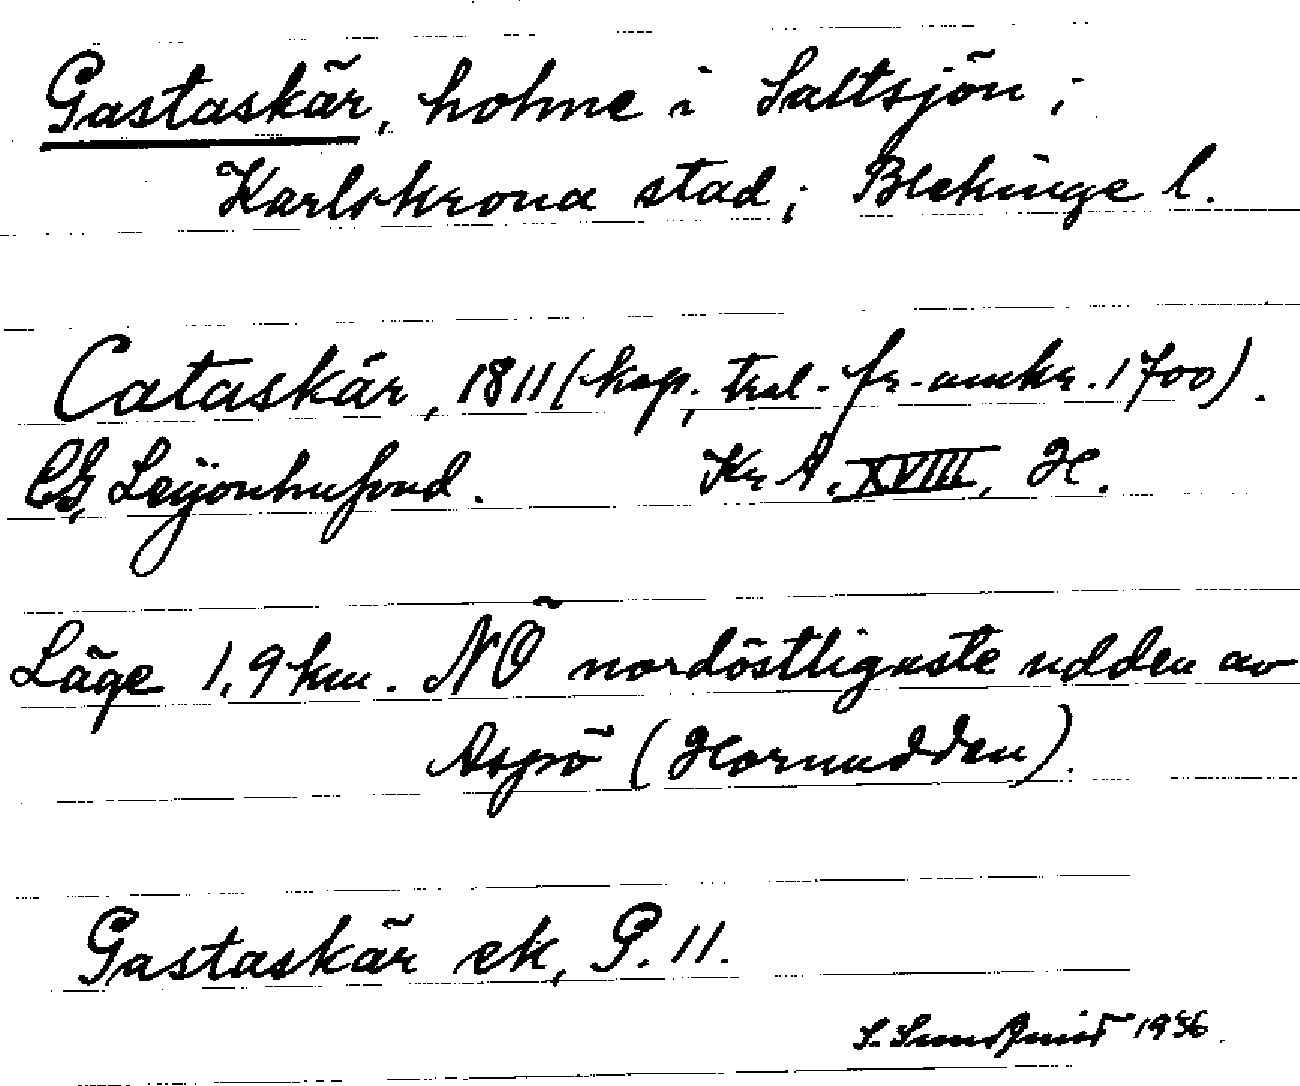 Gastaskär, holme i Saltsjön;
Karlskrona stad; Blekinge l.
Cataskär, 1811 (kop, trol. fr. omkr. 1700).
CG, Leijonhufvud. Kr A. XVIII, H.
Läge 1,9 km. NÖ nordöstligaste udden av
Aspö (Hornudden).
Gastaskär ek, G. 11.
S. Sundquist 1936